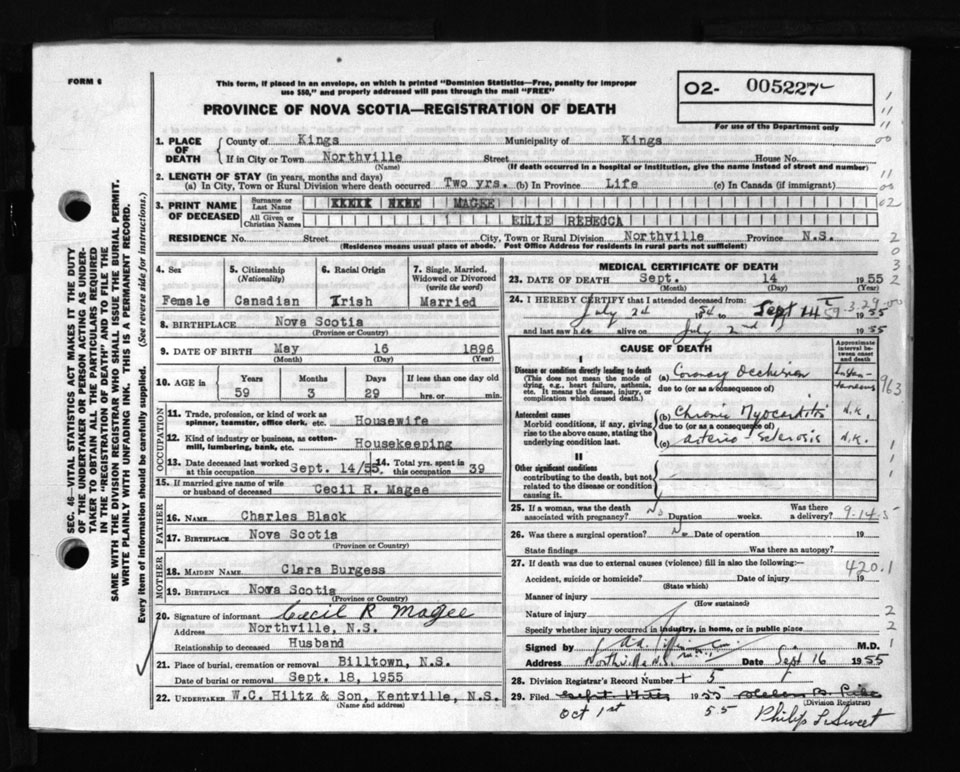 FORM 6
This form, if placed in an envelope, on which is printed "Dominion Statistics—Free, penalty for improper
use $50," and properly addressed will pass through the mail "FREE"
PROVINCE OF NOVA SCOTIA—REGISTRATION OF DEATH
O2- 005227
For use of the Department only
SEC. 46—VITAL STATISTICS ACT MAKES IT THE DUTY
OF THE UNDERTAKER OR PERSON ACTING AS UNDER-
TAKER TO OBTAIN ALL THE PARTICULARS REQUIRED
IN THE "REGISTRATION OF DEATH" AND TO FILE THE
SAME WITH THE DIVISION REGISTRAR WHO SHALL ISSUE THE BURIAL PERMIT.
WRITE PLAINLY WITH UNFADING INK. THIS IS A PERMANENT RECORD.
Every item of information should be carefully supplied. (See reverse side for instructions.)
1. PLACE OF DEATH County of Kings Municipality of Kings
If in City or Town Northville Street House No.
(Name) (If death occurred in a hospital or institution, give the name instead of street and number)
2. LENGTH OF STAY (in years, months and days)
(a) In City, Town or Rural Division where death occurred Two yrs. (b) In Province Life (c) In Canada (if immigrant)
3. PRINT NAME OF DECEASED Surname or Last Name MAGEE
All Given or Christian Names ELLIE REBECCA
RESIDENCE No. Street City, Town or Rural Division Northville Province N.S.
(Residence means usual place of abode. Post Office Address for residents in rural parts not sufficient)
4. Sex 5. Citizenship (Nationality) 6. Racial Origin 7. Single, Married, Widowed or Divorced (write the word)
Female Canadian Irish Married
8. BIRTHPLACE Nova Scotia
(Province or Country)
9. DATE OF BIRTH May 16 1896
(Month) (Day) (Year)
10. AGE IN Years Months Days If less than one day old
59 3 29 hrs. or min.
OCCUPATION
11. Trade, profession, or kind of work as spinner, teamster, office clerk, etc. Housewife
12. Kind of industry or business, as cotton-mill, lumbering, bank, etc. Housekeeping
13. Date deceased last worked at this occupation Sept. 14/55 14. Total yrs. spent in this occupation 39
15. If married give name of wife or husband of deceased Cecil R. Magee
FATHER
16. NAME Charles Black
17. BIRTHPLACE Nova Scotia
(Province or Country)
MOTHER
18. MAIDEN NAME Clara Burgess
19. BIRTHPLACE Nova Scotia
(Province or Country)
20. Signature of informant Cecil R Magee
Address Northville, N.S.
Relationship to deceased Husband
21. Place of burial, cremation or removal Billtown, N.S.
Date of burial or removal Sept. 18, 1955
22. UNDERTAKER W.C. Hiltz & Son, Kentville, N.S.
(Name and address)
MEDICAL CERTIFICATE OF DEATH
23. DATE OF DEATH Sept. 14 1955
(Month) (Day) (Year)
24. I HEREBY CERTIFY that I attended deceased from:
July 2d 1954 to Sept 14 1955
and last saw her alive on July 2nd 1955
CAUSE OF DEATH
Approximate interval between onset and death
I
Disease or condition directly leading to death
(This does not mean the mode of dying, e.g., heart failure, asthenia, etc. It means the disease, injury, or complication which caused death.)
(a) Coronary Occlusion Instantaneous
due to (or as a consequence of)
963
Antecedent causes
Morbid conditions, if any, giving rise to the above cause, stating the underlying condition last.
(b) Chronic Myocarditis N.K.
due to (or as a consequence of)
(c) Arterio Sclerosis N.K.
II
Other significant conditions
contributing to the death, but not related to the disease or condition causing it.
25. If a woman, was the death associated with pregnancy? No Duration weeks. Was there a delivery?
9-14-5
26. Was there a surgical operation? No Date of operation 19
State findings Was there an autopsy?
27. If death was due to external causes (violence) fill in also the following:—
420.1
Accident, suicide or homicide? Date of injury 19
(State which)
Manner of injury
(How sustained)
Nature of injury
Specify whether injury occurred in industry, in home, or in public place
Signed by M.D.
Address Northville N.S. Date Sept 16 1955
28. Division Registrar's Record Number 5
29. Filed 1955
(Division Registrar)
Oct 1st 55 Philip L. Sweet